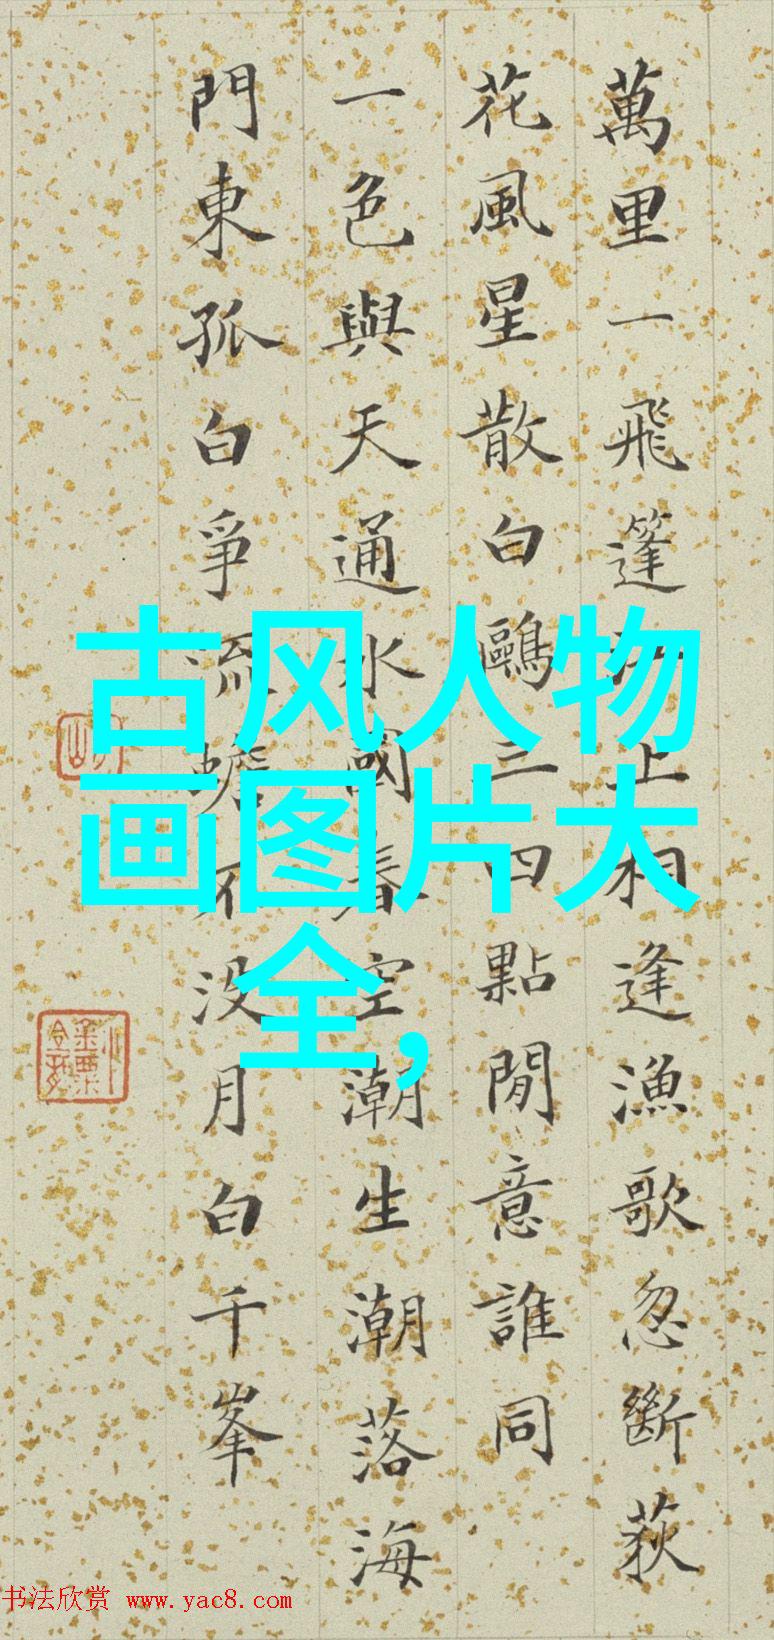 萬里一飛篷江上相逢漁歌忽斷荻
花風星散白鷗三四點閒意誰同
一色與天通水國春空潮生潮落海
門東孤白爭流蟾不沒月白千峯
古风人物
画图片大
全,
书法欣赏 www.yac8.com